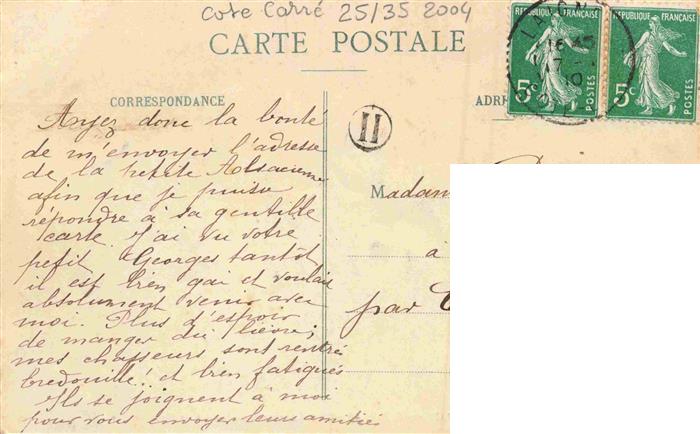 Cote Carré 25/35 2004
CARTE POSTALE
CORRESPONDANCE
ADR
RÉPUBLIQUE FRANÇAISE
5c
POSTES
RÉPUBLIQUE FRANÇAISE
5c
POSTES
LYON
H
Ayez donc la bonté
de m'envoyer l'adresse
de la petite Alsacienne
afin que je puisse
répondre à sa gentille
carte. J'ai vu votre
petit Georges tantôt,
il est bien gai et voulait
absolument venir avec
moi. Plus d'espoir
de manger du lièvre;
mes chasseurs sont rentrés
bredouille! et bien fatigués
Ils se joignent à moi
pour vous envoyer leurs amitiés
Madam
à
par